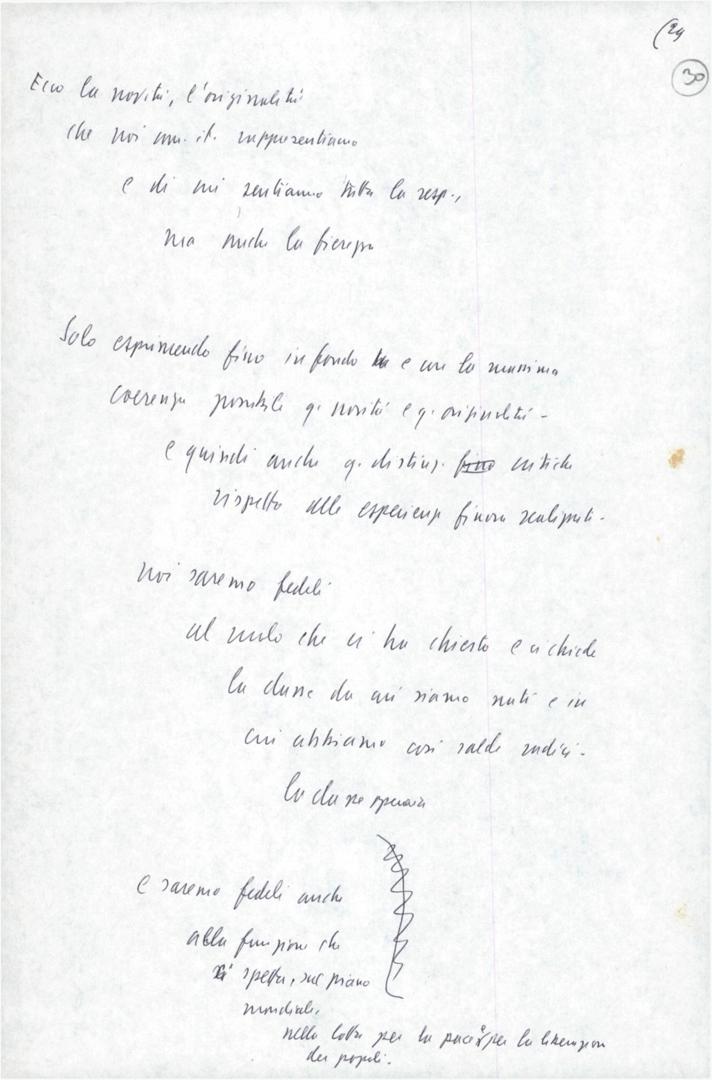 (29
30
Ecco la novità, l'originalità
che noi com. it. rappresentiamo
e di cui sentiamo tutta la resp.,
ma anche la fierezza
Solo esprimendo fino in fondo e con la massima
coerenza possibile q. novità e q. originalità -
e quindi anche q. distinz. critiche
rispetto alle esperienze finora realizzate -
noi saremo fedeli
al ruolo che ci ha chiesto e ci chiede
la classe da cui siamo nati e in
cui abbiamo così salde radici -
la classe operaia
e saremo fedeli anche
alla funzione che
ci spetta, sul piano
mondiale,
nella lotta per la pace e per la liberazione
dei popoli.